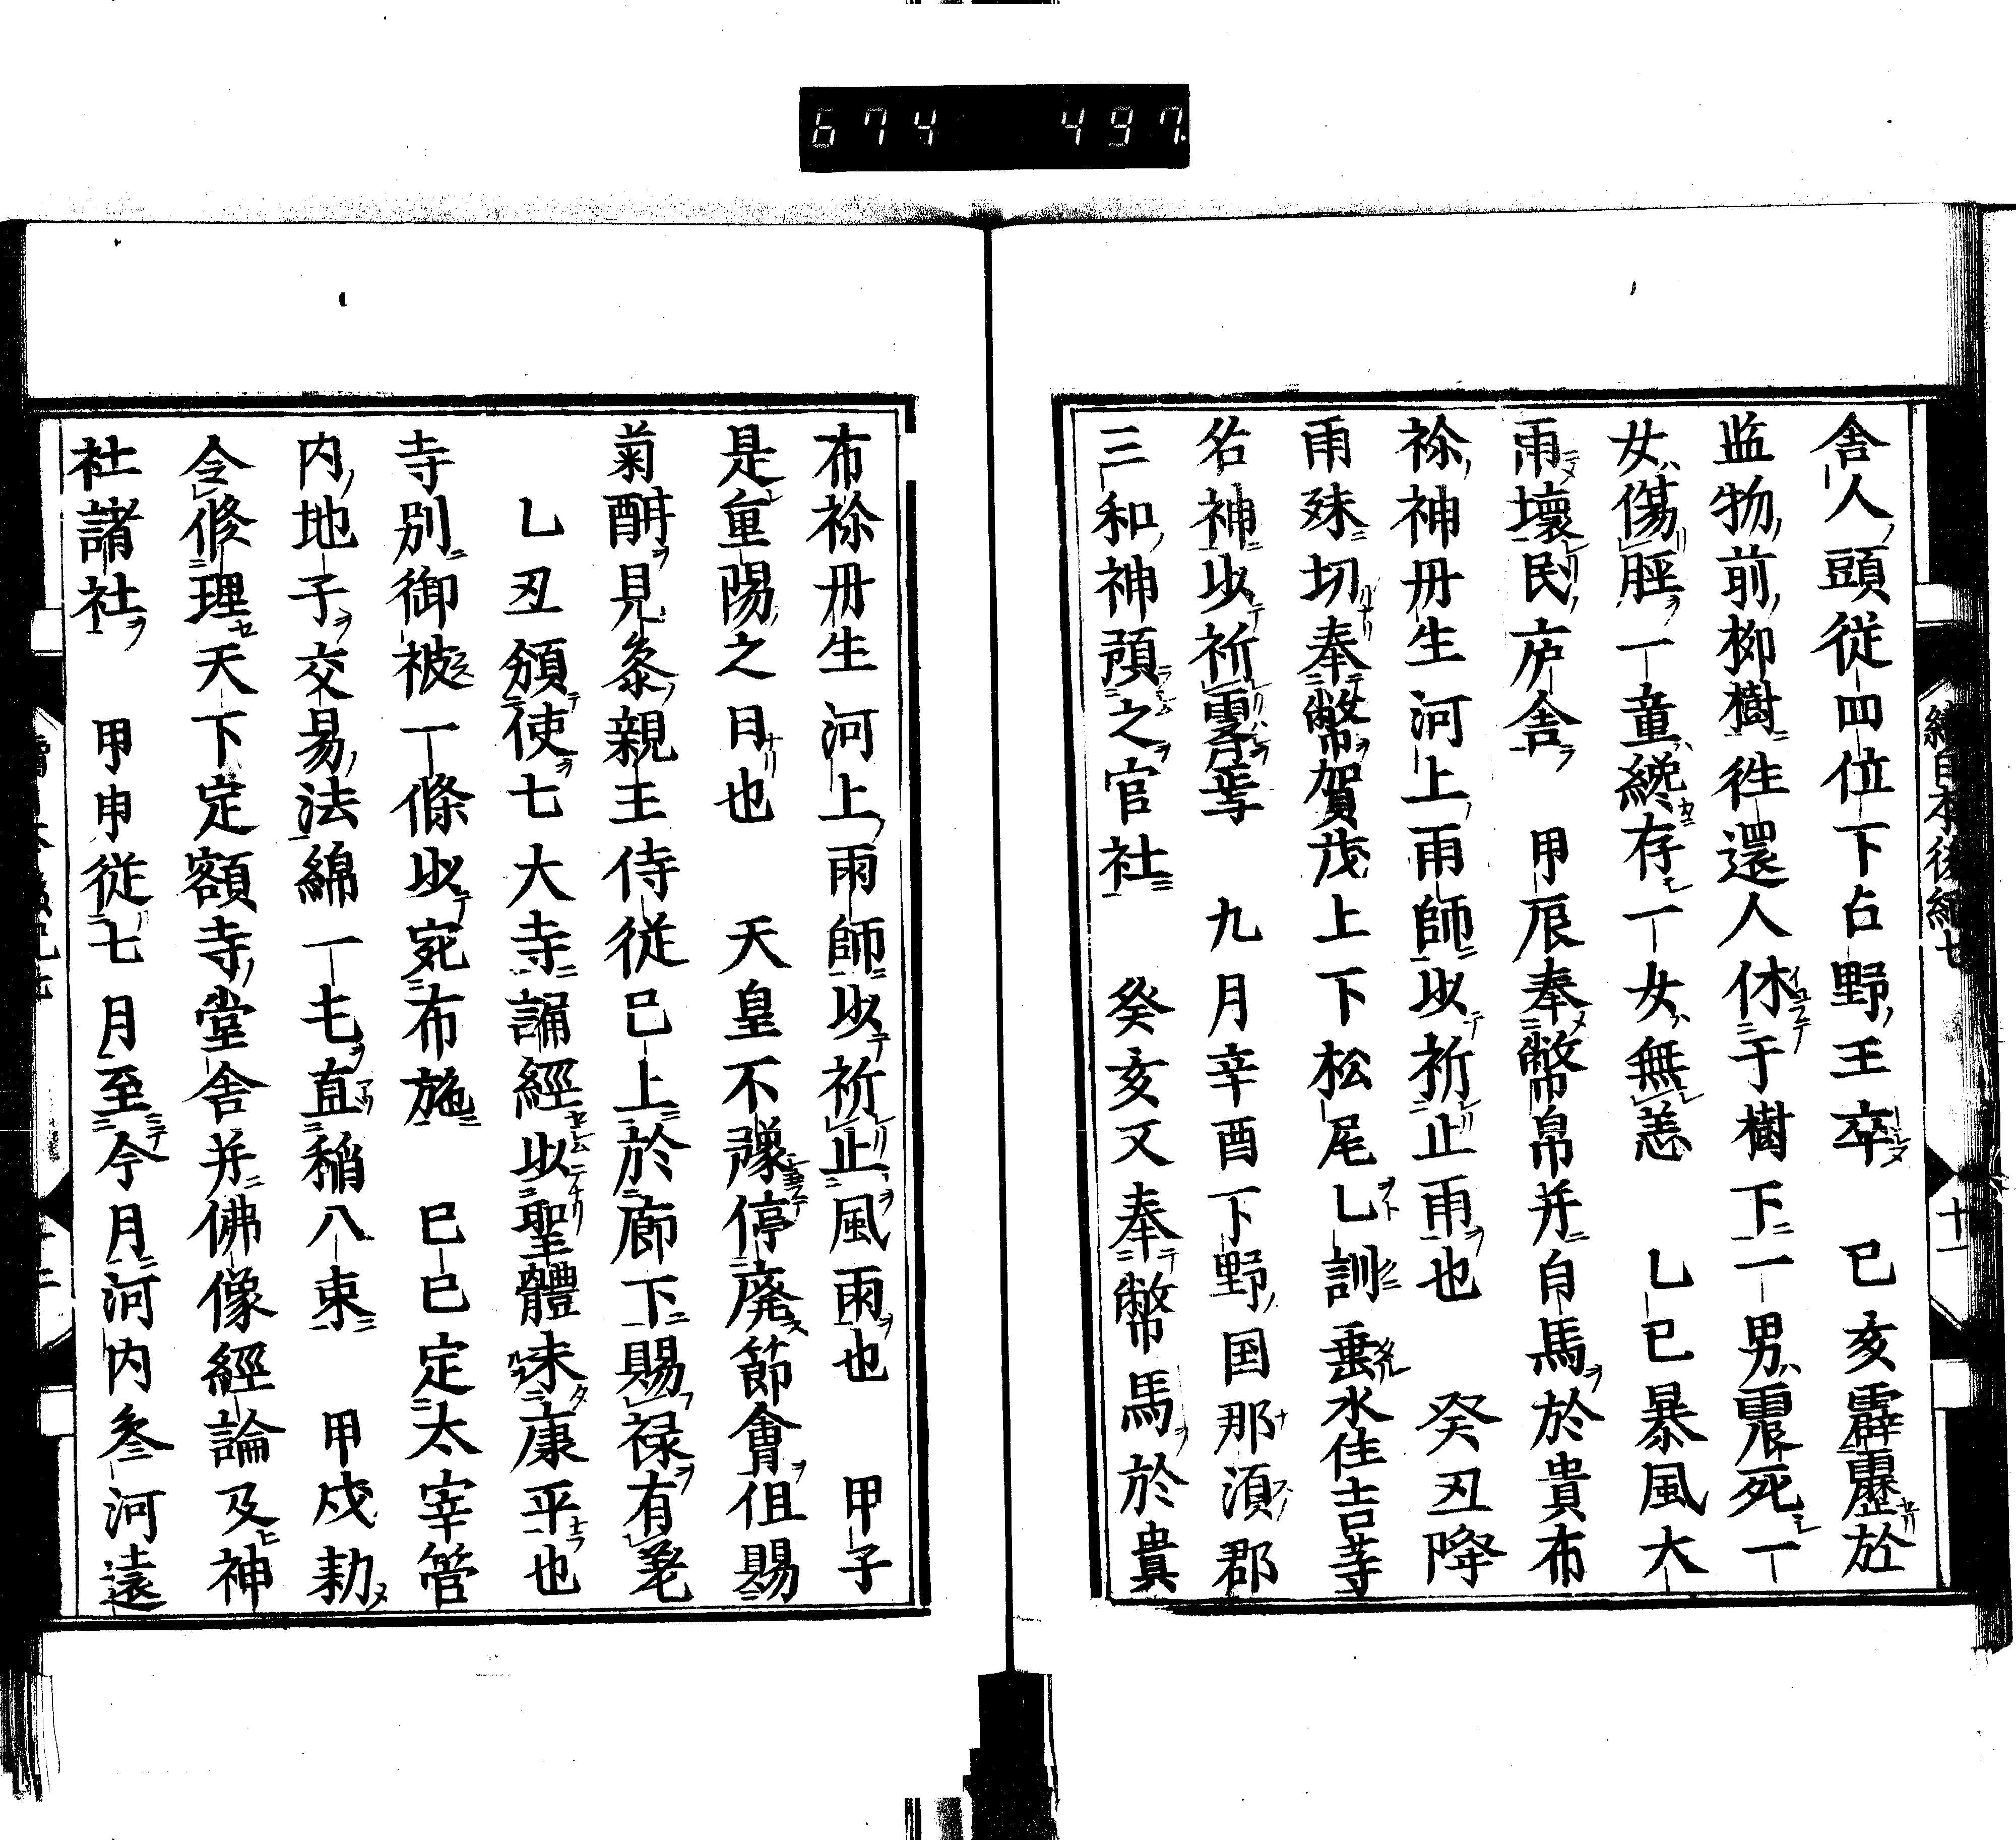 674 497
續日本後紀七
十一
舎人頭従四位下占野王卒 已亥霹靂於
监物前柳樹徃還人休于樹下一男震死一
女傷脛一童纔存一女無恙 乚巳暴風大
雨壞民庐舎 甲辰奉幣帛并自馬於貴布
祢神丹生河上雨師以祈止雨也 癸丑降
雨殊切奉幣賀茂上下松尾乚訓垂水住吉䓁
名神以祈霽䓁 九月辛酉下野国那湏郡
三和神預之官社 癸亥又奉幣馬於貴
布祢丹生河上雨師以祈止風雨也 甲子
是重陽之日也 天皇不豫停廃節會但賜
菊酎見叅親王侍従已上於廊下賜禄有差
乚丑頒使七大寺誦經以聖體未康平也
寺別御被一條以宛布施 巳巳定太宰管
内地子交易法綿一屯直稲八束 甲戍勅
令修理天下定額寺堂舎并佛像經論及神
社諸社 甲申従七月至今月河内叄河遠